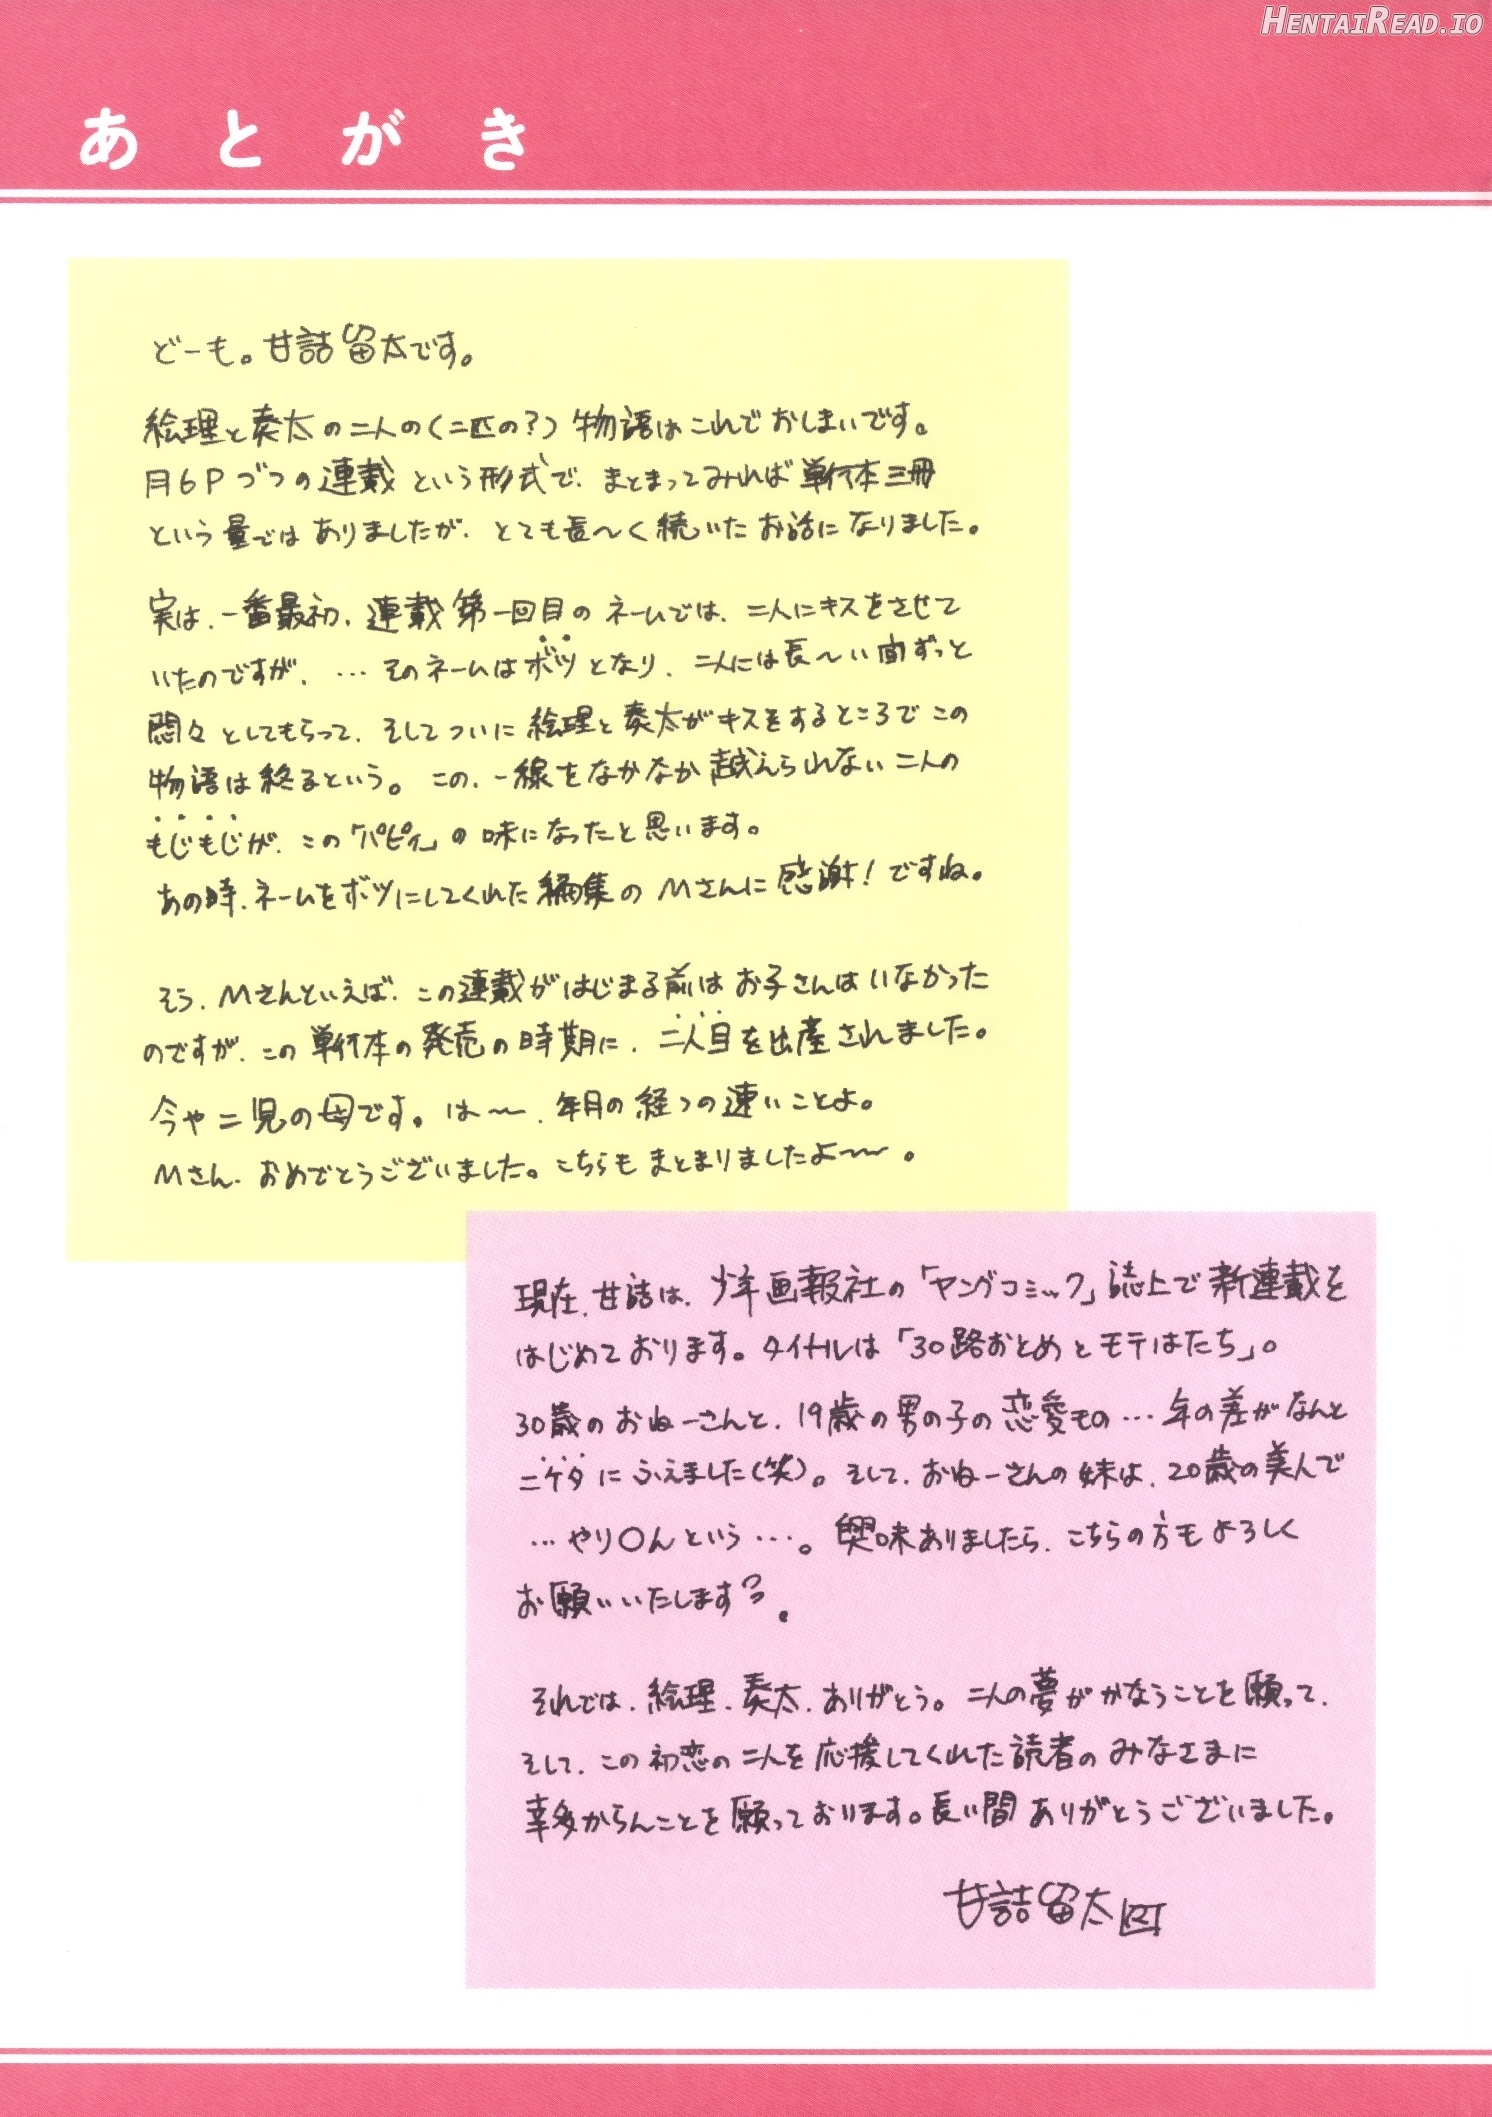 HENTAIREAD.IO
あとがき
どーも。甘詰留太です。
絵理と奏太の二人の(二匹の?)物語はこれでおしまいです。
月6Pづつの連載という形式で、まとまってみれば単行本三冊
という量ではありましたが、とても長〜く続いたお話になりました。
実は、一番最初、連載第一回目のネームでは、二人にキスをさせて
いたのですが、…そのネームはボツとなり、二人には長〜い間ずっと
悶々としてもらって、そしてついに絵理と奏太がキスをするところでこの
物語は終るという。この、一線をなかなか越えられない二人の
もじもじが、この「パピィ」の味になったと思います。
あの時、ネームをボツにしてくれた編集のMさんに感謝!ですね。
そう、Mさんといえば、この連載がはじまる前はお子さんはいなかった
のですが、この単行本の発売の時期に、二人目を出産されました。
今や二児の母です。は〜、年月の経つの速いことよ。
Mさん、おめでとうございました。こちらもまとまりましたよ〜。
現在、甘詰は、少年画報社の「ヤングコミック」誌上で新連載を
はじめております。タイトルは「30路おとめとモテはたち」。
30歳のおねーさんと、19歳の男の子の恋愛もの…年の差がなんと
ニケタにふえました(笑)。そして、おねーさんの妹は、20歳の美人で
…やり〇んという…。興味ありましたら、こちらの方もよろしく
お願いいたしますっ。
それでは、絵理、奏太、ありがとう。二人の夢がかなうことを願って、
そして、この初恋の二人を応援してくれた読者のみなさまに
幸多からんことを願っております。長い間ありがとうございました。
甘詰留太